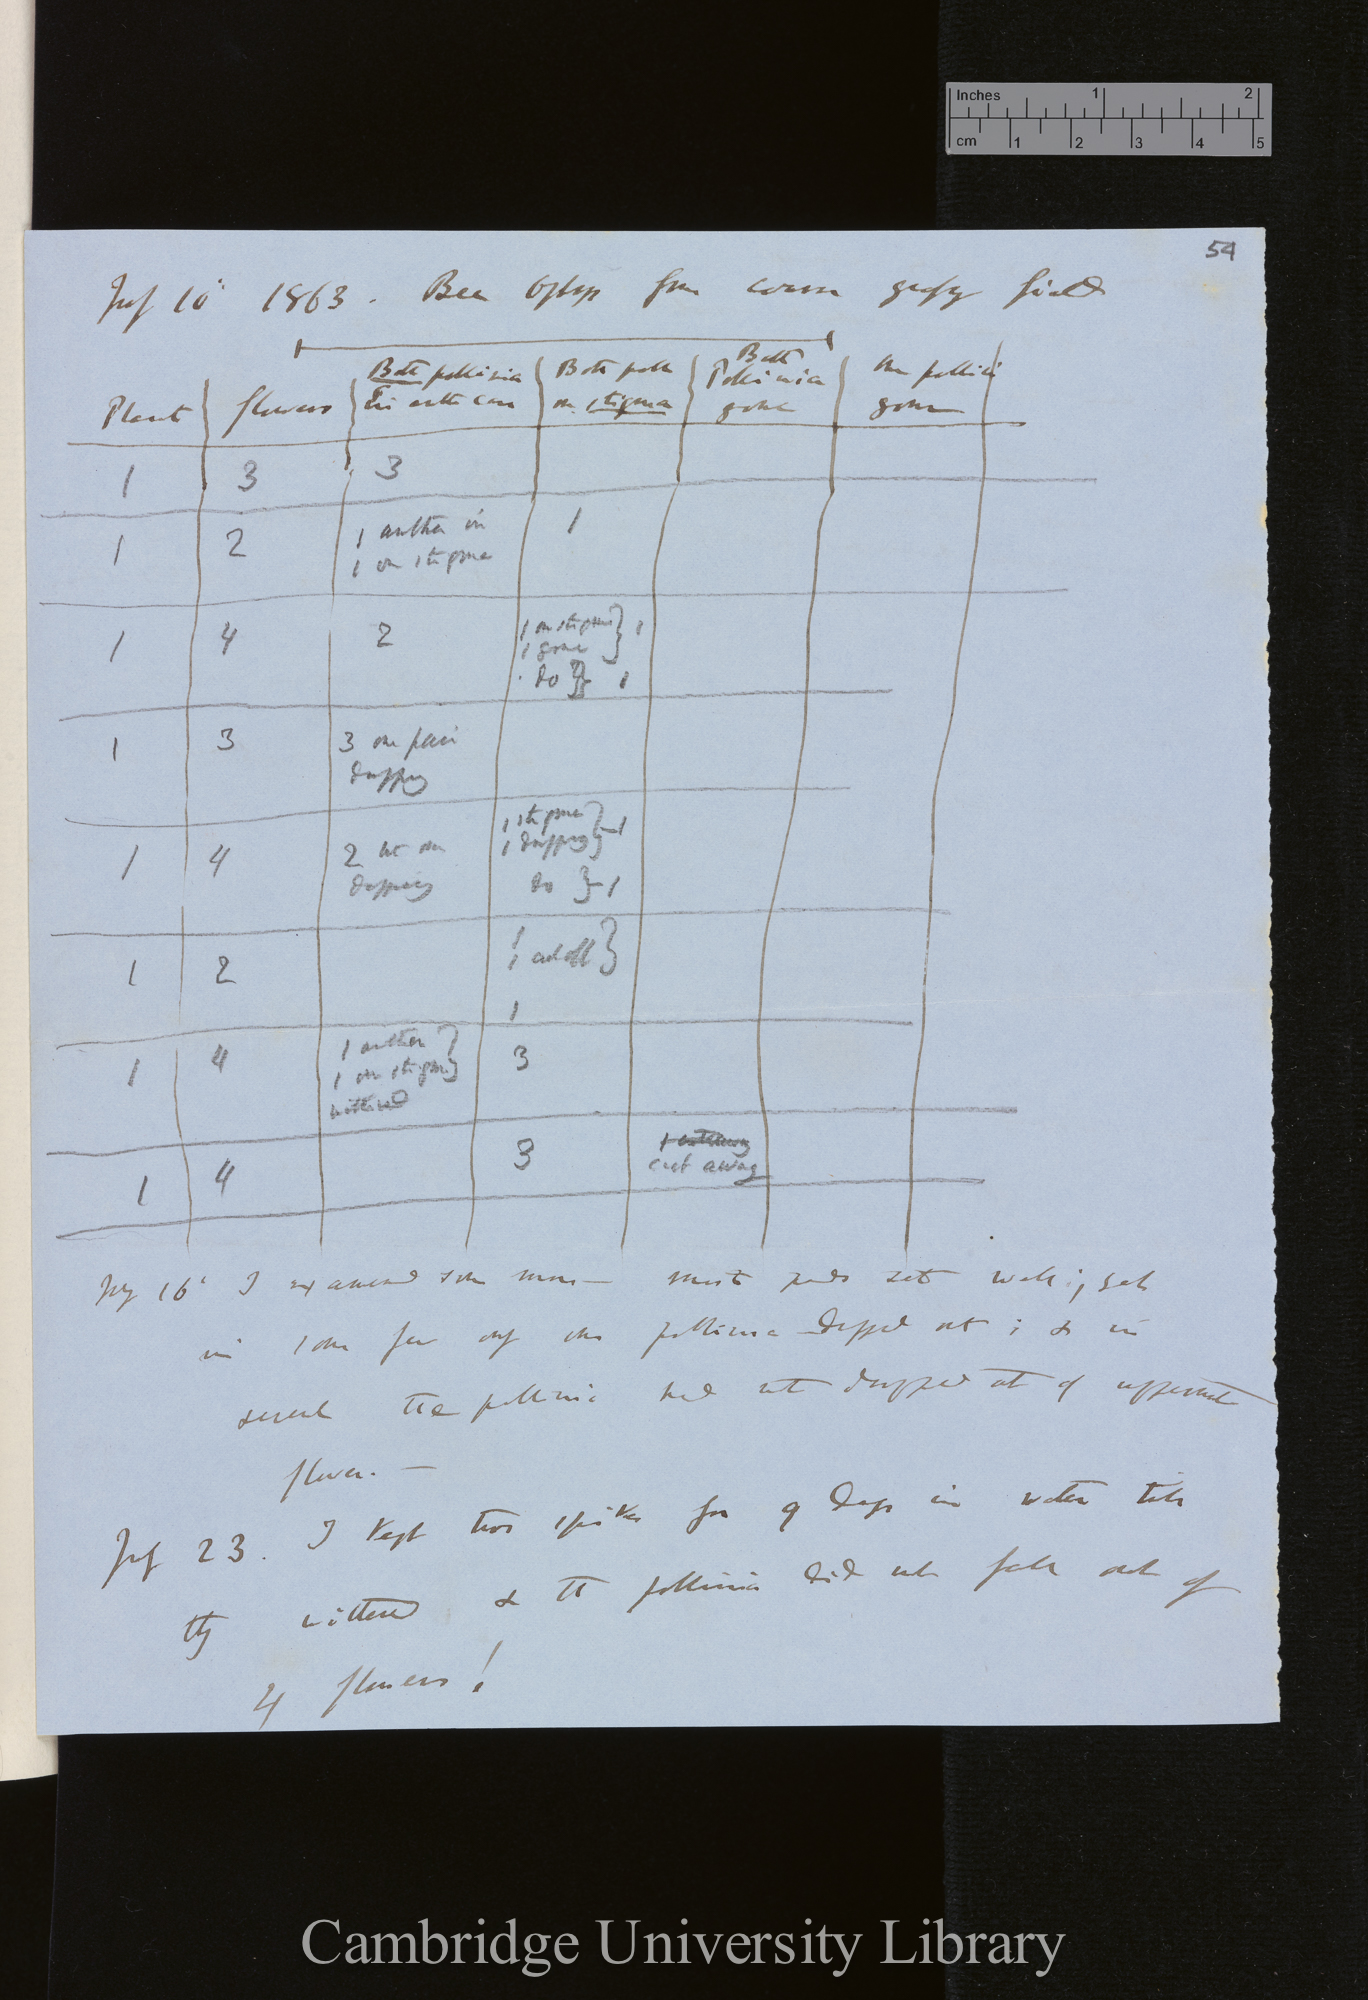 Inches 1 2
cm 1 2 3 4 5
54
July 10' 1863. Bee Ophrys from coarse grassy field
Plant flowers Both pollinia in anther case Both poll on stigma Both Pollinia gone One pollinia gone
1 3 3
1 2 1 anther in 1
1 on stigma
1 4 2 1 on stigma } 1
1 gone
do } 1
1 3 3 one pair
dropping
1 4 2 not on 1 stigma } 1
dropping 1 dropping
do } 1
1 2 1
1 cut off }
1
1 4 1 anther } 3
1 on stigma
withered
1 4 3 1
cut away
July 16' I examined some more — most pods set well; yet
in some few only one pollinia dropped out; & in
several the pollinia had not dropped out of uppermost
flower. —
July 23. I kept two spikes for 9 days in water till
they withered & the pollinia did not fall out of
4 flowers!
Cambridge University Library